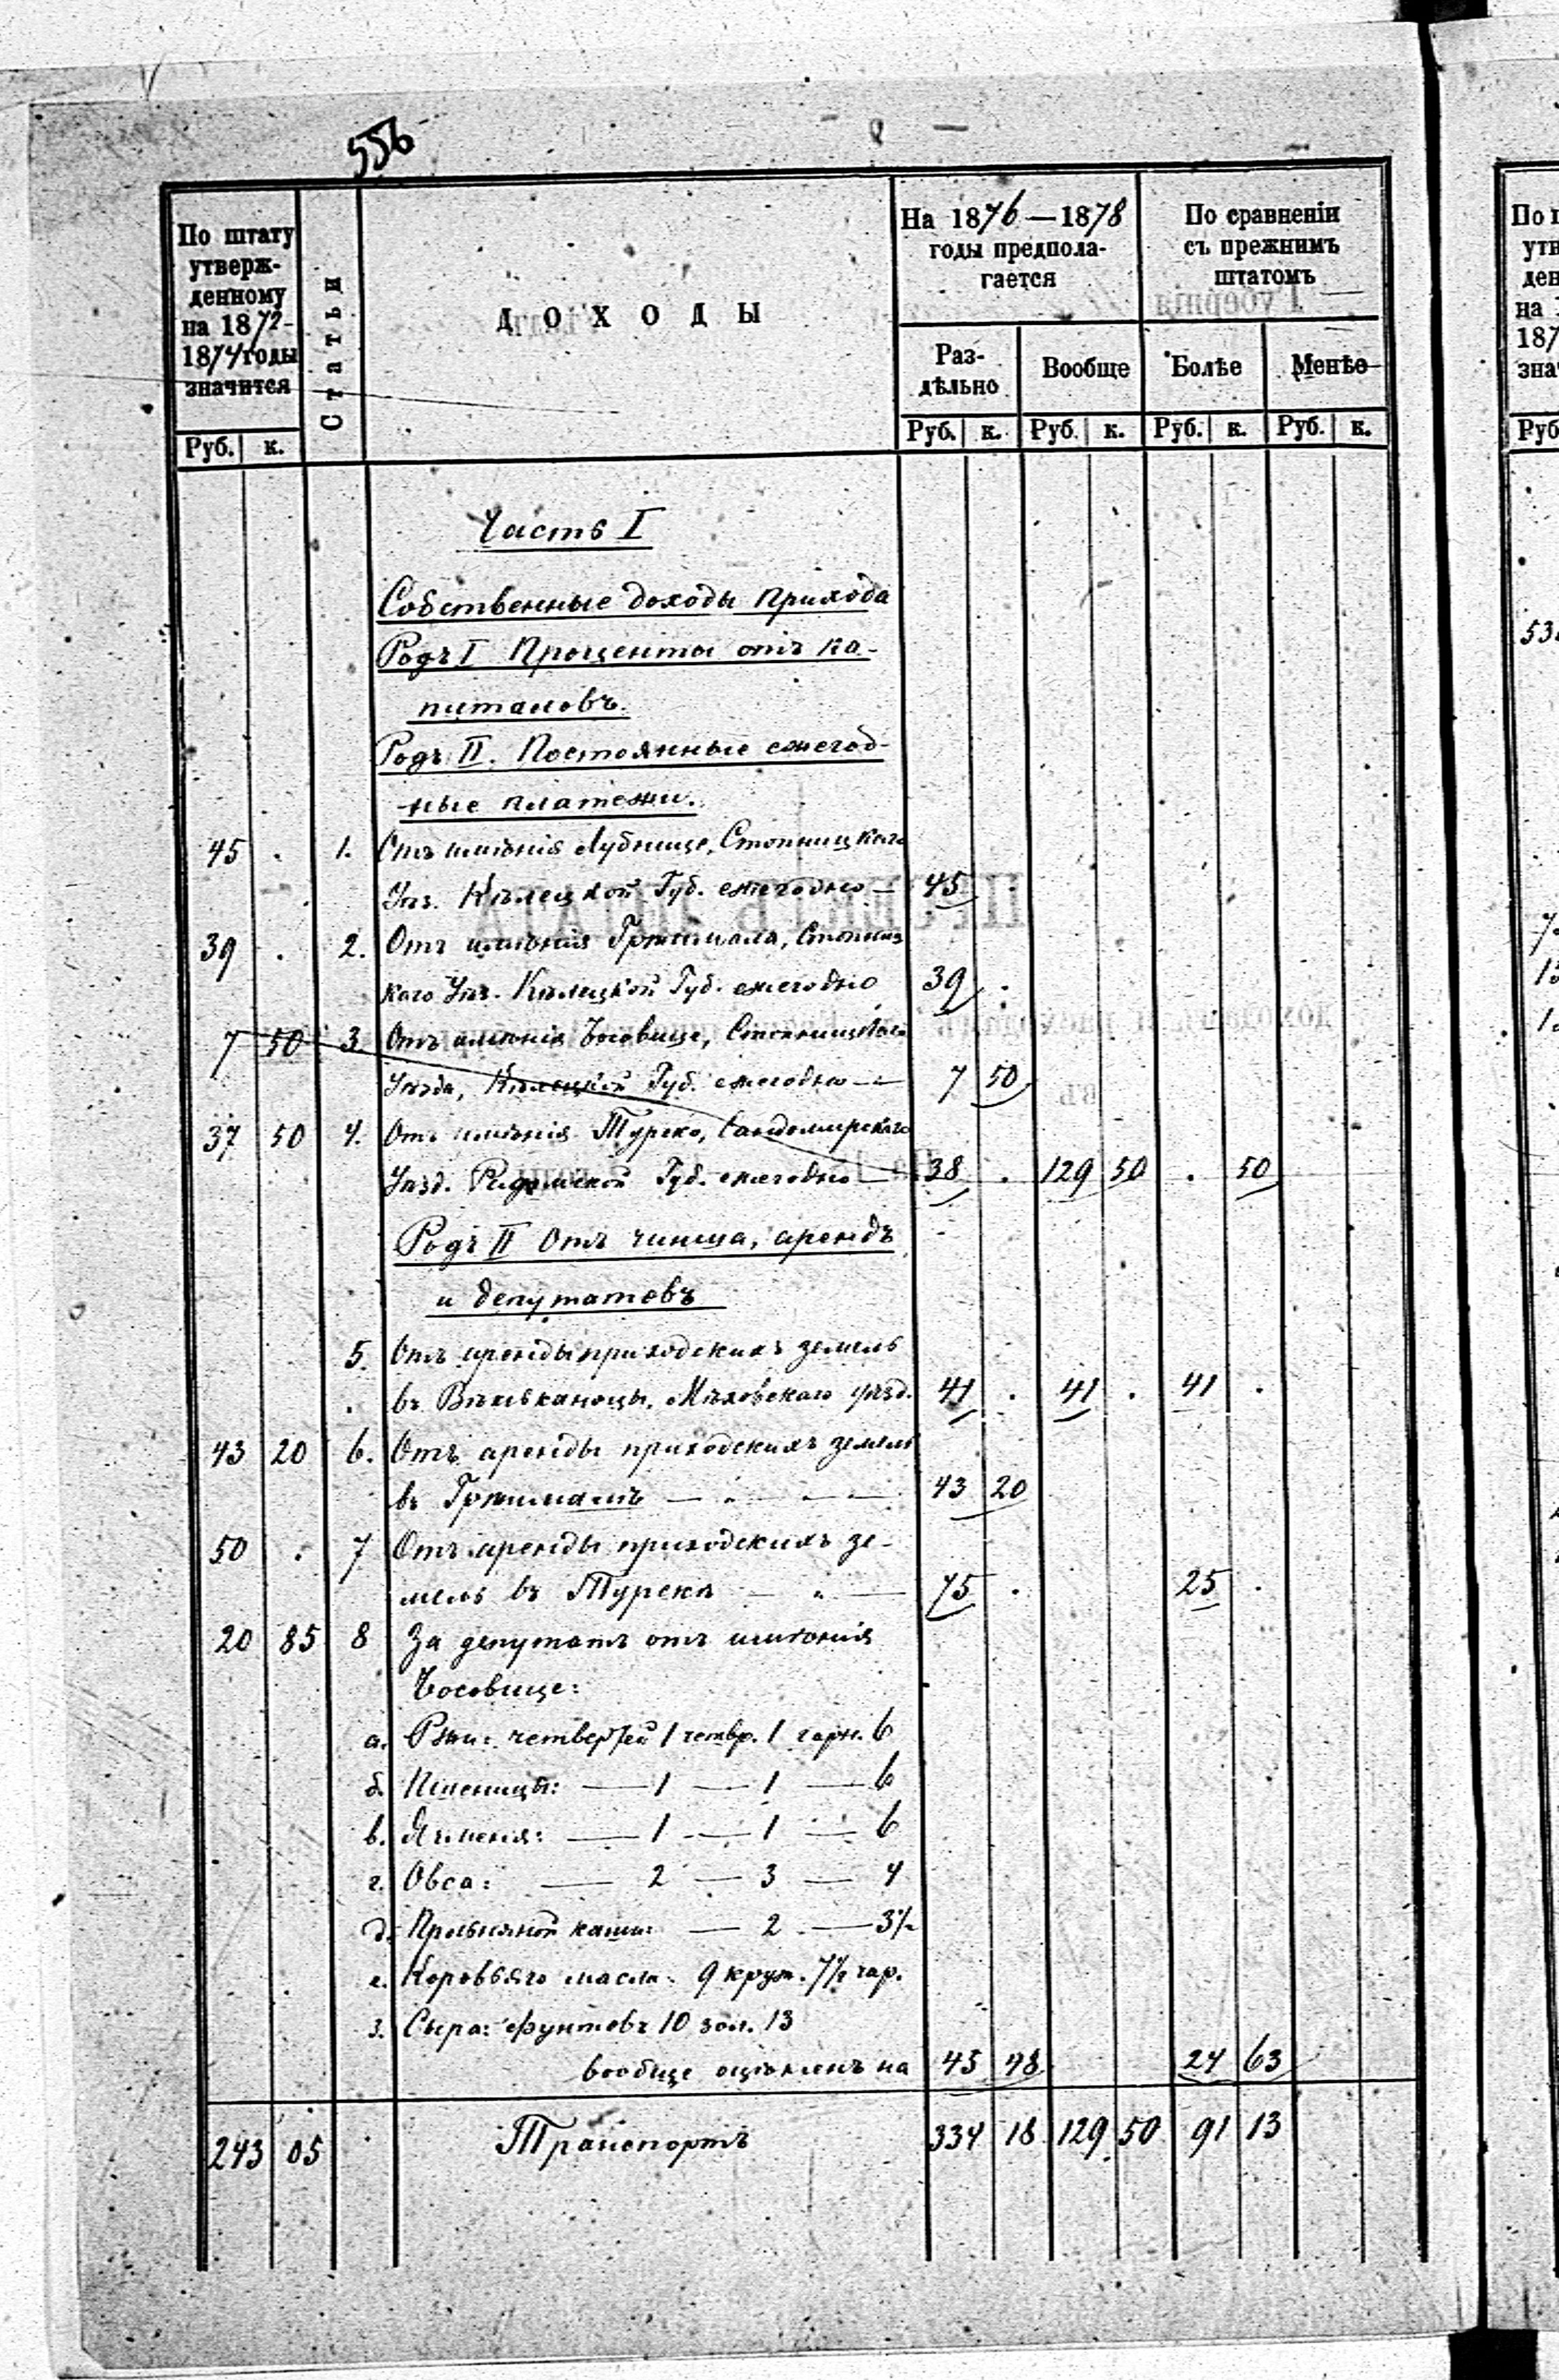 556
По штату
утверж-
денному
на 1872-
1874 годы
значится
Статьи
ДОХОДЫ
На 1876—1878
годы предпола-
гается
По сравненіи
съ прежнимъ
штатомъ
Раз-
дѣльно
Вообще
Болѣе
Менѣе
Руб. к. Руб. к. Руб. к. Руб. к. Руб. к.
Часть I
Собственные доходы прихода
Родъ I Проценты отъ ка-
питаловъ.
Родъ II. Постоянные ежегод-
ные платежи.
45 . 1. Отъ имѣнія Лубнице, Стопницкаго
Уѣз. Кѣлецкой Губ. ежегодно — 45
39 . 2. Отъ имѣнія Гржимала, Стопниц
каго Уѣз. Кѣлецкой Губ. ежегодно 39 .
7 50 3. Отъ имѣнія Босовице, Стопницкаго
Уѣзда, Кѣлецкой Губ. ежегодно — 7 50
37 50 4. Отъ имѣнія Турско, Сандомирскаго
Уѣзд. Радомской Губ. ежегодно — 38 . 129 50 . 50
Родъ II Отъ чинша, арендъ
и депутатовъ
5. Отъ аренды приходскихъ земель
въ Мѣховскаго уѣзд. 41 . 41 . 41 .
43 20 6. Отъ аренды приходскихъ земель
въ Гржималѣ — " — — 43 20
50 . 7 Отъ аренды приходскихъ зе-
мель въ Турскѣ — " — 75 . 25 .
20 85 8 За депутатъ отъ имѣнія
Босовице:
а. Ржи: четвертей 1 четвр. 1 гарн. 6
б. Пшеницы: — 1 — 1 — 6
в. Ячменя: — 1 — 1 — 6
г. Овса: — 2 — 3 — 4
д. каши: — 2 — 3½
е. Коровьяго масла: 9 круж. 7½ чар.
з. Сыра: Фунтовъ 10 зол. 13
вообще оцѣненъ на 45 48 24 63
243 05 Транспортъ 334 18 129 50 91 13